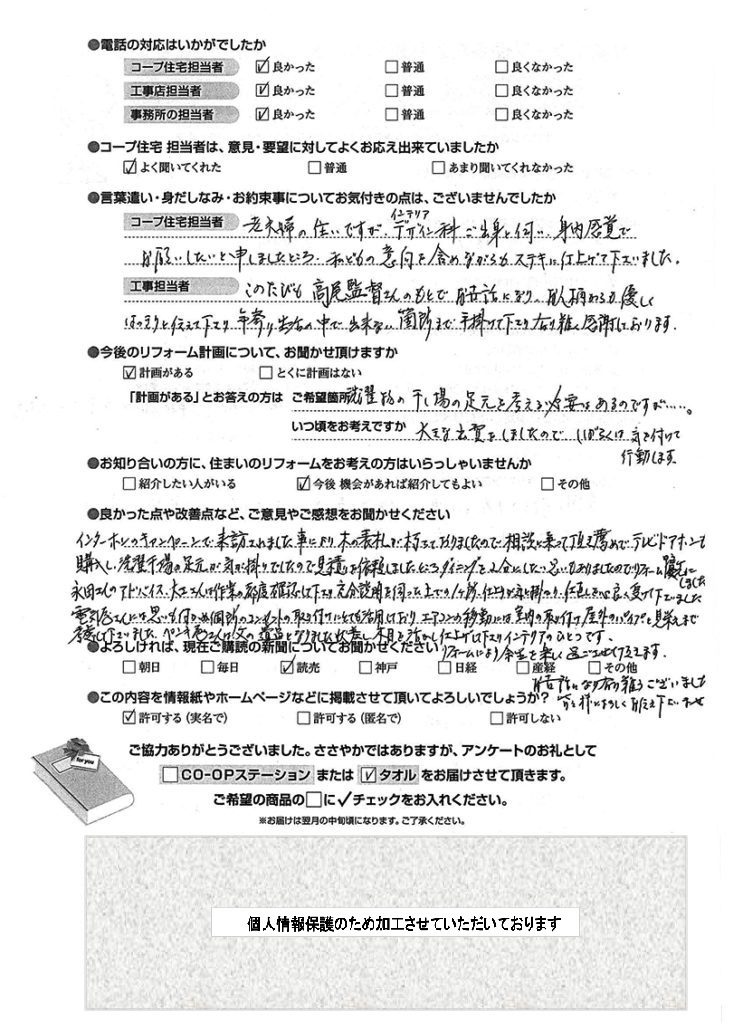 ●電話の対応はいかがでしたか
コープ住宅担当者 ☑良かった □普通 □良くなかった
工事店担当者 ☑良かった □普通 □良くなかった
事務所の担当者 ☑良かった □普通 □良くなかった
●コープ住宅 担当者は、意見・要望に対してよくお応え出来ていましたか
☑よく聞いてくれた □普通 □あまり聞いてくれなかった
●言葉遣い・身だしなみ・お約束事についてお気付きの点は、ございませんでしたか
インテリア
コープ住宅担当者 老夫婦の住いですが、デザイン科ご出身と伺い、身内感覚で
お願いしたいと申しましたところ、私どもの意向を含めながらもステキに仕上げて下さいました。
工事担当者 このたびも高尾監督さんのもとでお世話になり、お人柄からも優しく
はっきりと伝えて下さり年寄り生活の中で出来ない箇所まで手掛けて下さり有り難く感謝しております。
●今後のリフォーム計画について、お聞かせ頂けますか
☑計画がある □とくに計画はない
「計画がある」とお答えの方は ご希望箇所 洗濯物の干し場の足元を考える必要はあるのですが……。
いつ頃をお考えですか 大きな出費をしましたので しばらくは気を付けて
行動します。
●お知り合いの方に、住まいのリフォームをお考えの方はいらっしゃいませんか
□紹介したい人がいる ☑今後 機会があれば紹介してもよい □その他
●良かった点や改善点など、ご意見やご感想をお聞かせください
インターホンのキャンペーンで来訪されました車により木の表札が朽ちておりましたので相談に乗って頂き薦めでテレビドアホンを
購入し、洗濯干場の足元が気掛りでしたので見積を依頼しました にしたい思いもありましたのでリフォーム
永田さんのアドバイス、大工さんは作業の都度確認して下さり充分説明を伺った上で 仕上がり
電気屋さんには思いも付かぬ個所のコンセントの取り付けにとても活用しており、エアコンの移動には室内の取り付け、屋外のパイプと見栄えまで
考慮して下さいました。ペンキ屋さんは父の遺品となりました 木目を活かし仕上げて下さりインテリアのひとつです。
●よろしければ、現在ご購読の新聞についてお聞かせください リフォームにより余生を楽しく過ごさせて頂けます。
□朝日 □毎日 ☑読売 □神戸 □日経 □産経 □その他
お世話になり有り難うございました
●この内容を情報紙やホームページなどに掲載させて頂いてよろしいでしょうか? 皆々様によろしくお伝え下さいませ
☑許可する(実名で) □許可する(匿名で) □許可しない
for you
ご協力ありがとうございました。ささやかではありますが、アンケートのお礼として
□CO-OPステーション または ☑タオル をお届けさせて頂きます。
ご希望の商品の□に✓チェックをお入れください。
※お届けは翌月の中旬頃になります。ご了承ください。
個人情報保護のため加工させていただいております